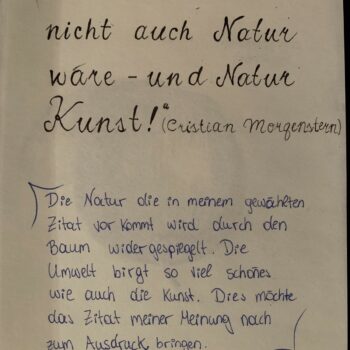 nicht auch Natur
wäre - und Natur
Kunst!" (Cristian Morgenstern)
Die Natur die in meinem gewählten
Zitat vor kommt wird durch den
Baum widergespiegelt. Die
Umwelt birgt so viel schönes
wie auch die Kunst. Dies möchte
das Zitat meiner Meinung nach
zum Ausdruck bringen.